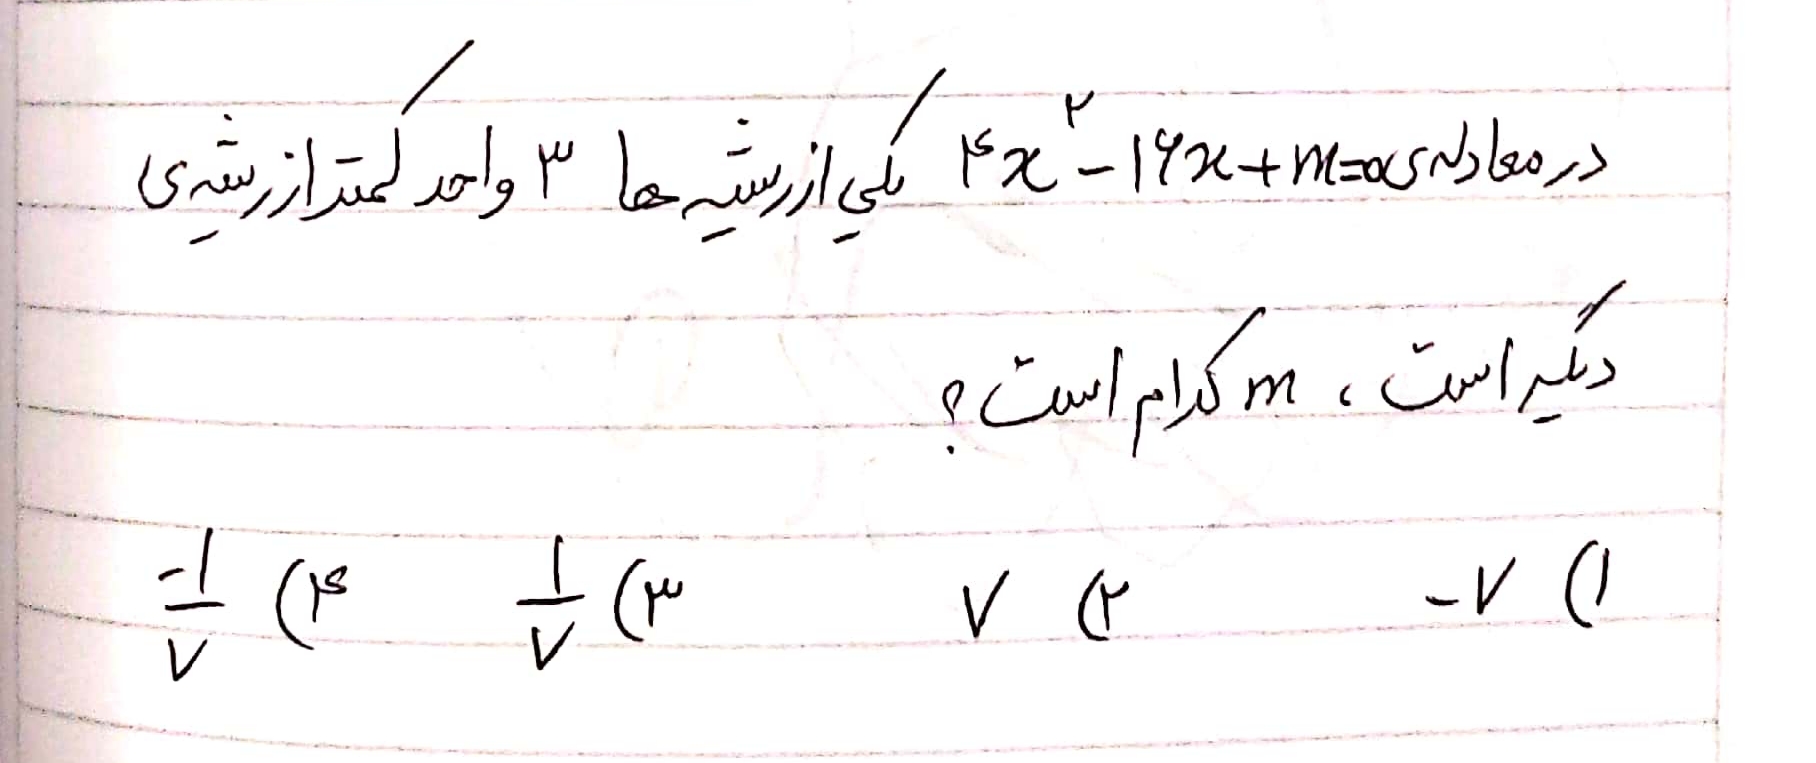 در معادله‌ی ۴x^۲ - ۱۶x + m = ۰ یکی از ریشه ها ۳ واحد کمتر از ریشه‌ی
دیگر است ، m کدام است ؟
۱) -۷ ۲) ۷ ۳) ۱/۷ ۴) -۱/۷